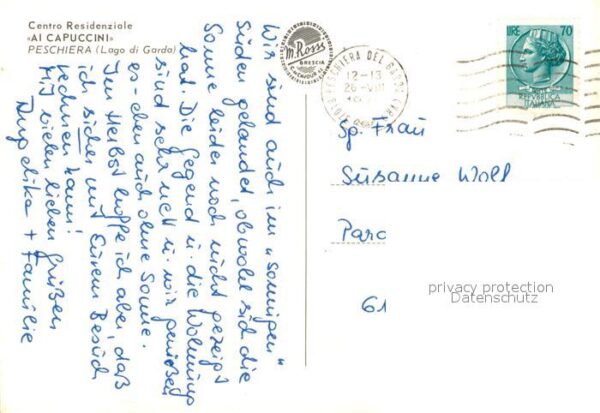 Centro Residenziale
«AI CAPUCCINI»
PESCHIERA (Lago di Garda)
m. Rossi
BRESCIA
PESCHIERA DEL GARDA
12-13
26-VIII
LIRE 70
REPUBBLICA
ITALIANA
Wir sind auch im "sonnigen"
Süden gelandet, obwohl sich die
Sonne leider noch nicht gezeigt
hat. Die Gegend u. die Wohnung
sind sehr nett u. wir genießen
es - eben auch ohne Sonne.
Im Herbst hoffe ich aber, daß
ich sicher mit Eurem Besuch
rechnen kann!
Mit vielen lieben Grüßen
Angelika + Familie
Sp. Frau
Susanne Wolf
Parc
61
privacy protection
Datenschutz